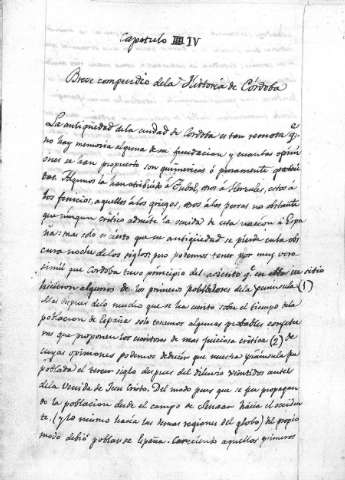 Capitulo IV
Breve compendio de la Historia de Córdoba
La antigüedad de la ciudad de Cordoba es tan remota q.e
no hay memoria alguna de su fundacion y cuantas opini
ones se han propuesto son quimericas ó puramente
Algunos la han atribuido á Tubal, otros á Hercules, estos á
los fenicios, aquellos á los griegos, otros á los persas no obstante
que ningun critico admite la venida de esta nacion á Espa
ña: mas solo es cierto que su antigüedad se pierde en la obs
cura noche de los siglos; pero podemos tener por muy vero
simil que Cordoba tuvo principio del asiento q.e en su sitio
hicieron algunos de los primeros pobladores de la peninsula (1)
Mas despues de lo mucho que se ha escrito sobre el tiempo de la
poblacion de España solo tenemos algunas probables conjetu
ras que proponen los escritores de mas juiciosa critica (2) de
cuyas opiniones podemos deducir que nuestra peninsula fue
poblada el tercer siglo despues del diluvio veintidos antes
de la venida de Jesu Cristo. Del modo pues que se fue propagan
do la poblacion desde el campo de Senaar hácia el occiden
te, (y lo mismo hácia las demas regiones del globo) del propio
modo debió poblarse España. Careciendo aquellos primeros